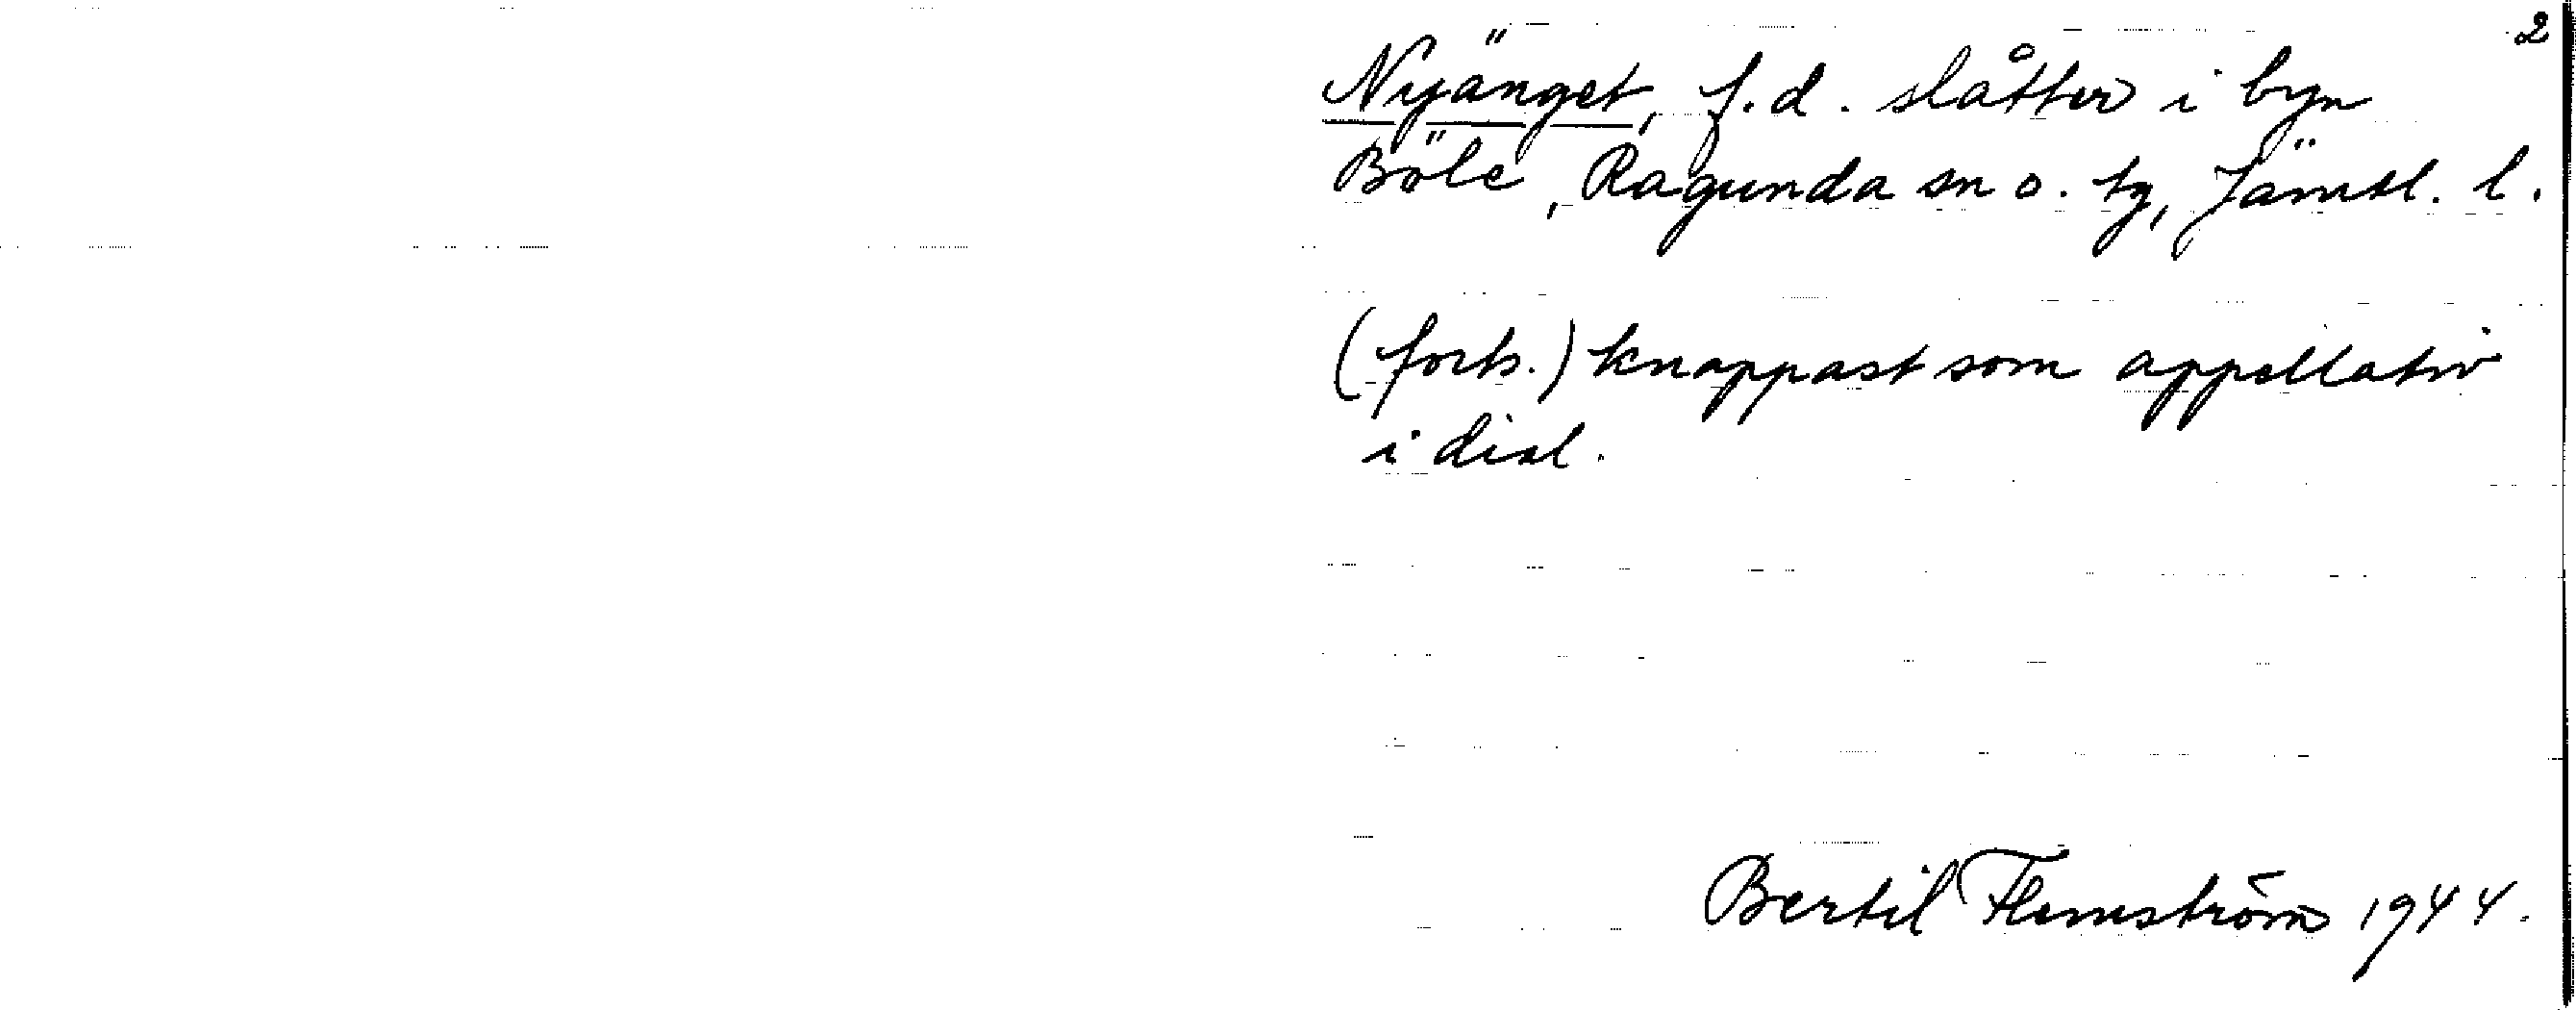 2
Nyänget, f.d. slåtter i byn
Böle, Ragunda sn o. tg, Jämtl. l.
(forts.) knappast som appellativ
i dial.
Bertil Flemström 1944.